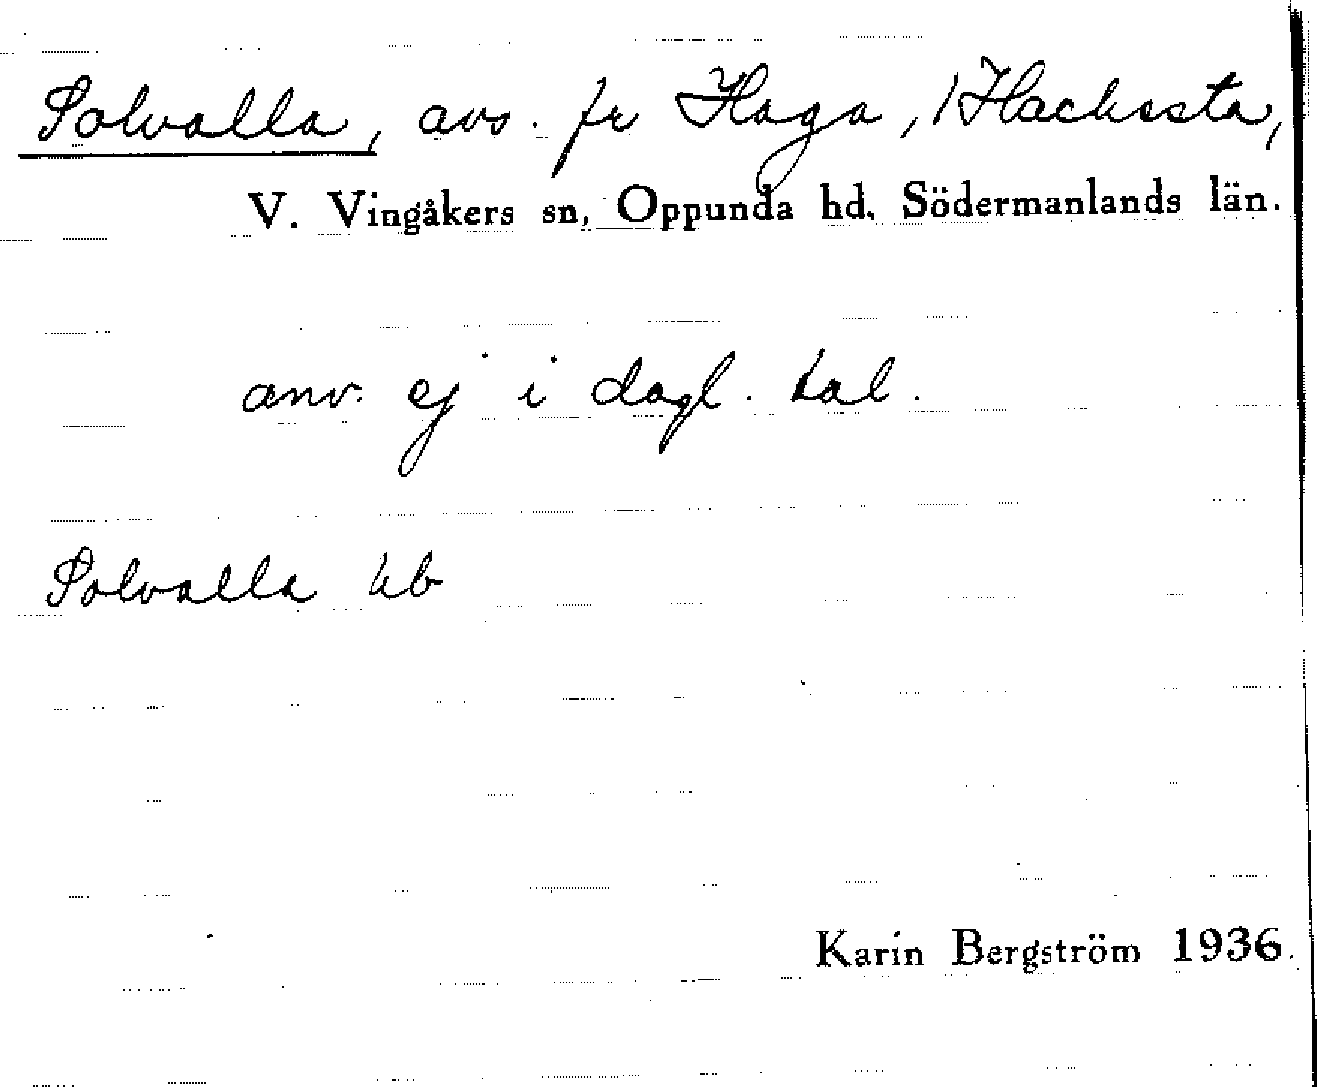 Solvalla, avs. fr Haga, /Hacksta,
V. Vingåkers sn, Oppunda hd. Södermanlands län.
anv. ej i dagl. tal.
Solvalla hb
Karin Bergström 1936.